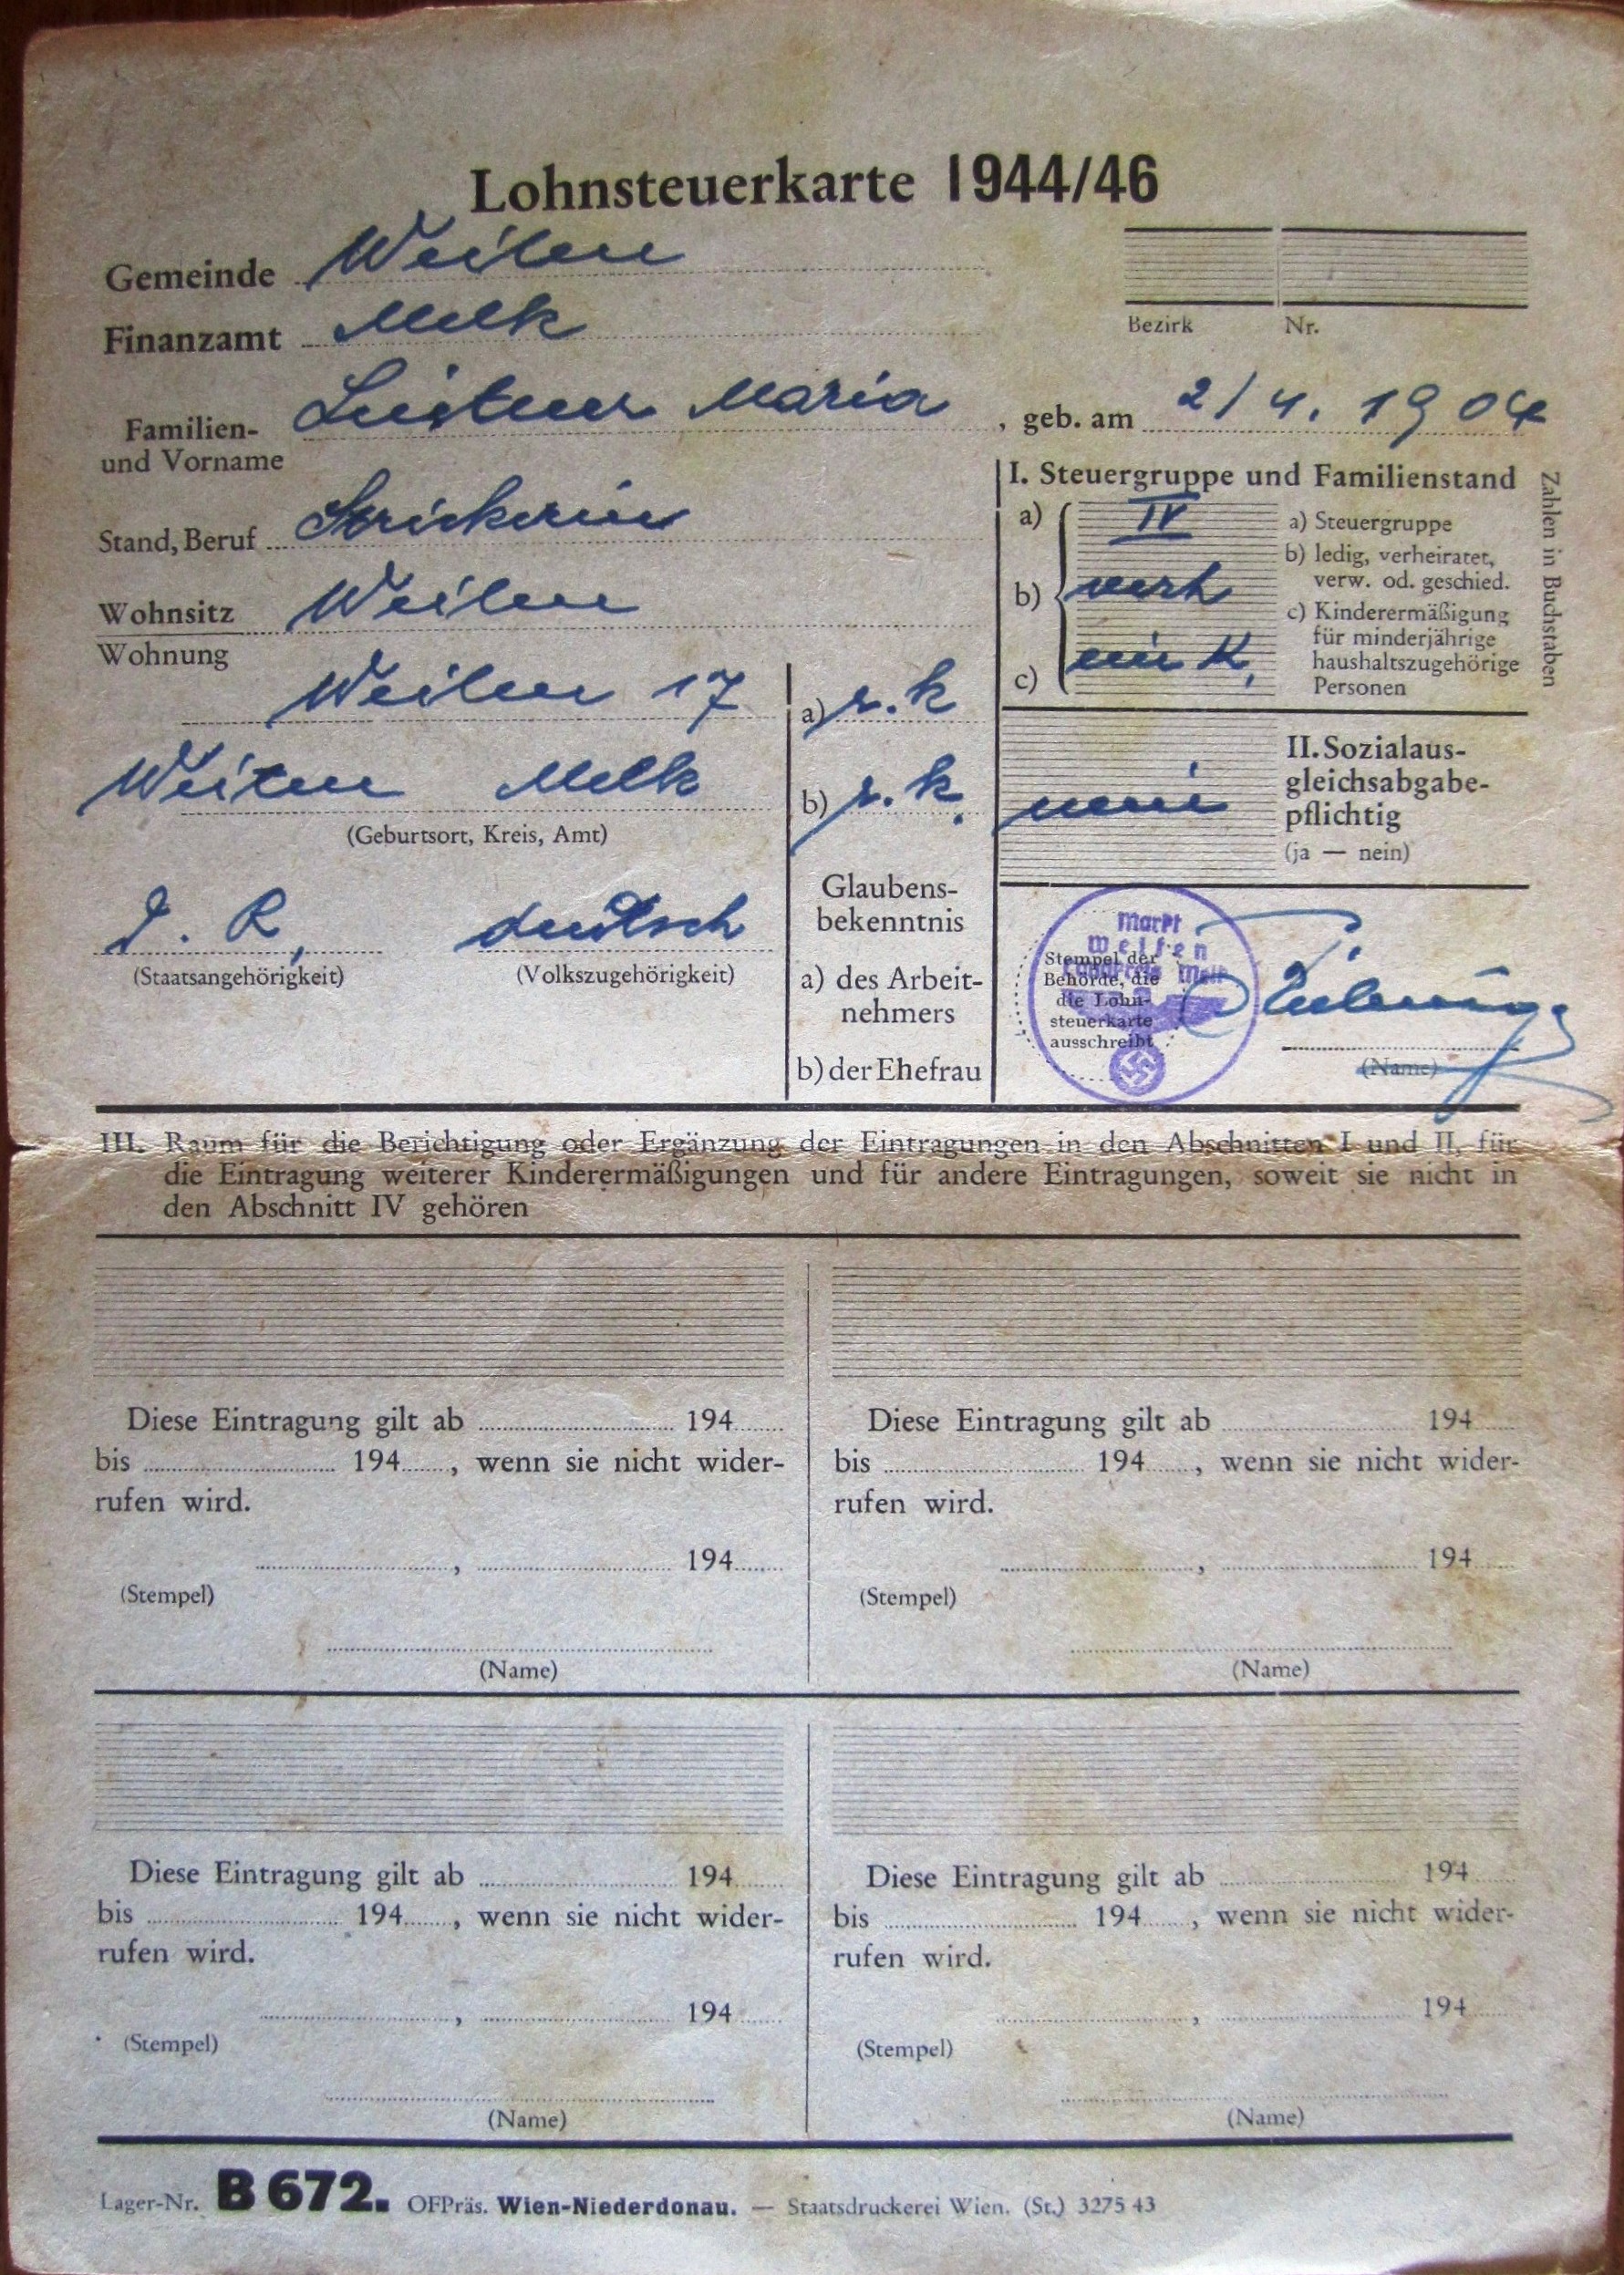 Lohnsteuerkarte 1944/46
Gemeinde Weiten
Finanzamt Melk
Bezirk Nr.
Familien- und Vorname Leistner Maria, geb. am 2/4. 1904
Stand, Beruf Strickerin
Wohnsitz Weiten
Wohnung
Weiten 17
Weiten Melk
(Geburtsort, Kreis, Amt)
D. R., deutsch
(Staatsangehörigkeit) (Volkszugehörigkeit)
a) r. k
b) r. k.
Glaubens-
bekenntnis
a) des Arbeit-
nehmers
b) der Ehefrau
I. Steuergruppe und Familienstand
a) IV
b) verh
c) ein K,
a) Steuergruppe
b) ledig, verheiratet,
verw. od. geschied.
c) Kinderermäßigung
für minderjährige
haushaltszugehörige
Personen
Zahlen in Buchstaben
nein
II. Sozialaus-
gleichsabgabe-
pflichtig
(ja — nein)
Markt
Weiten
Landkreis Melk
Stempel der
Behörde, die
die Lohn-
steuerkarte
ausschreibt
(Name)
III. Raum für die Berichtigung oder Ergänzung der Eintragungen in den Abschnitten I und II, für
die Eintragung weiterer Kinderermäßigungen und für andere Eintragungen, soweit sie nicht in
den Abschnitt IV gehören
Diese Eintragung gilt ab 194
bis 194, wenn sie nicht wider-
rufen wird.
, 194
(Stempel)
(Name)
Diese Eintragung gilt ab 194
bis 194, wenn sie nicht wider-
rufen wird.
, 194
(Stempel)
(Name)
Diese Eintragung gilt ab 194
bis 194, wenn sie nicht wider-
rufen wird.
, 194
(Stempel)
(Name)
Diese Eintragung gilt ab 194
bis 194, wenn sie nicht wider-
rufen wird.
, 194
(Stempel)
(Name)
Lager-Nr. B 672. OFPräs. Wien-Niederdonau. — Staatsdruckerei Wien. (St.) 3275 43